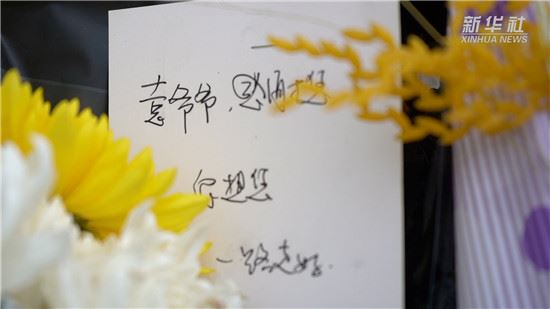 新华社
XINHUA NEWS
袁爷爷，
想您
一路走好.